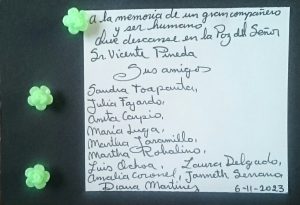 A la memoria de un gran compañero
y ser humano
que descanse en la Paz del Señor
Sr. Vicente Pineda
Sus amigos
Sandra Toapanta,
Julia Fajardo,
Anita Carpio,
María Luga,
Martha Jaramillo,
Martha Robalino,
Luis Ochoa, Laura Delgado,
Amalia Coronel, Janneth Serrano
Diana Martínez 6-11-2023